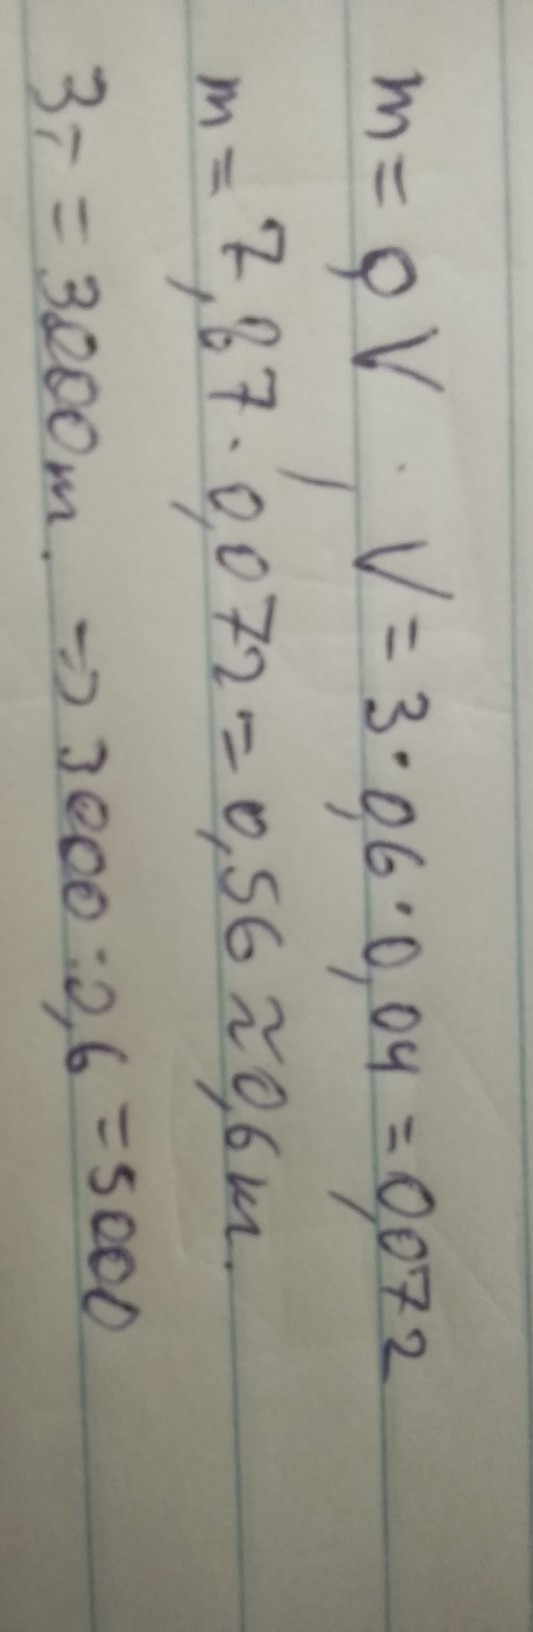 m = ρV. V = 3·0,6·0,04 = 0,072
m = 7,87·0,072 = 0,56 ≈ 0,6 т.
3т = 3000т. => 3000:0,6 = 5000